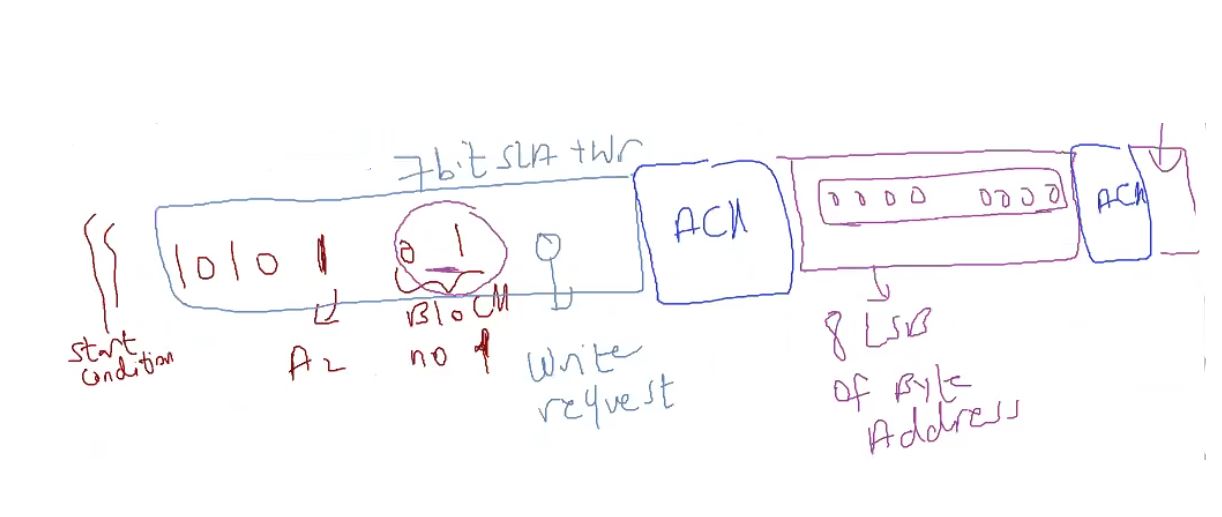 7bit SLA +Wr
1010 1 0 1 0
ACK
0000 0000
ACK
start
condition
A2
Block
no 1
Write
request
8 LSB
of Byte
Address